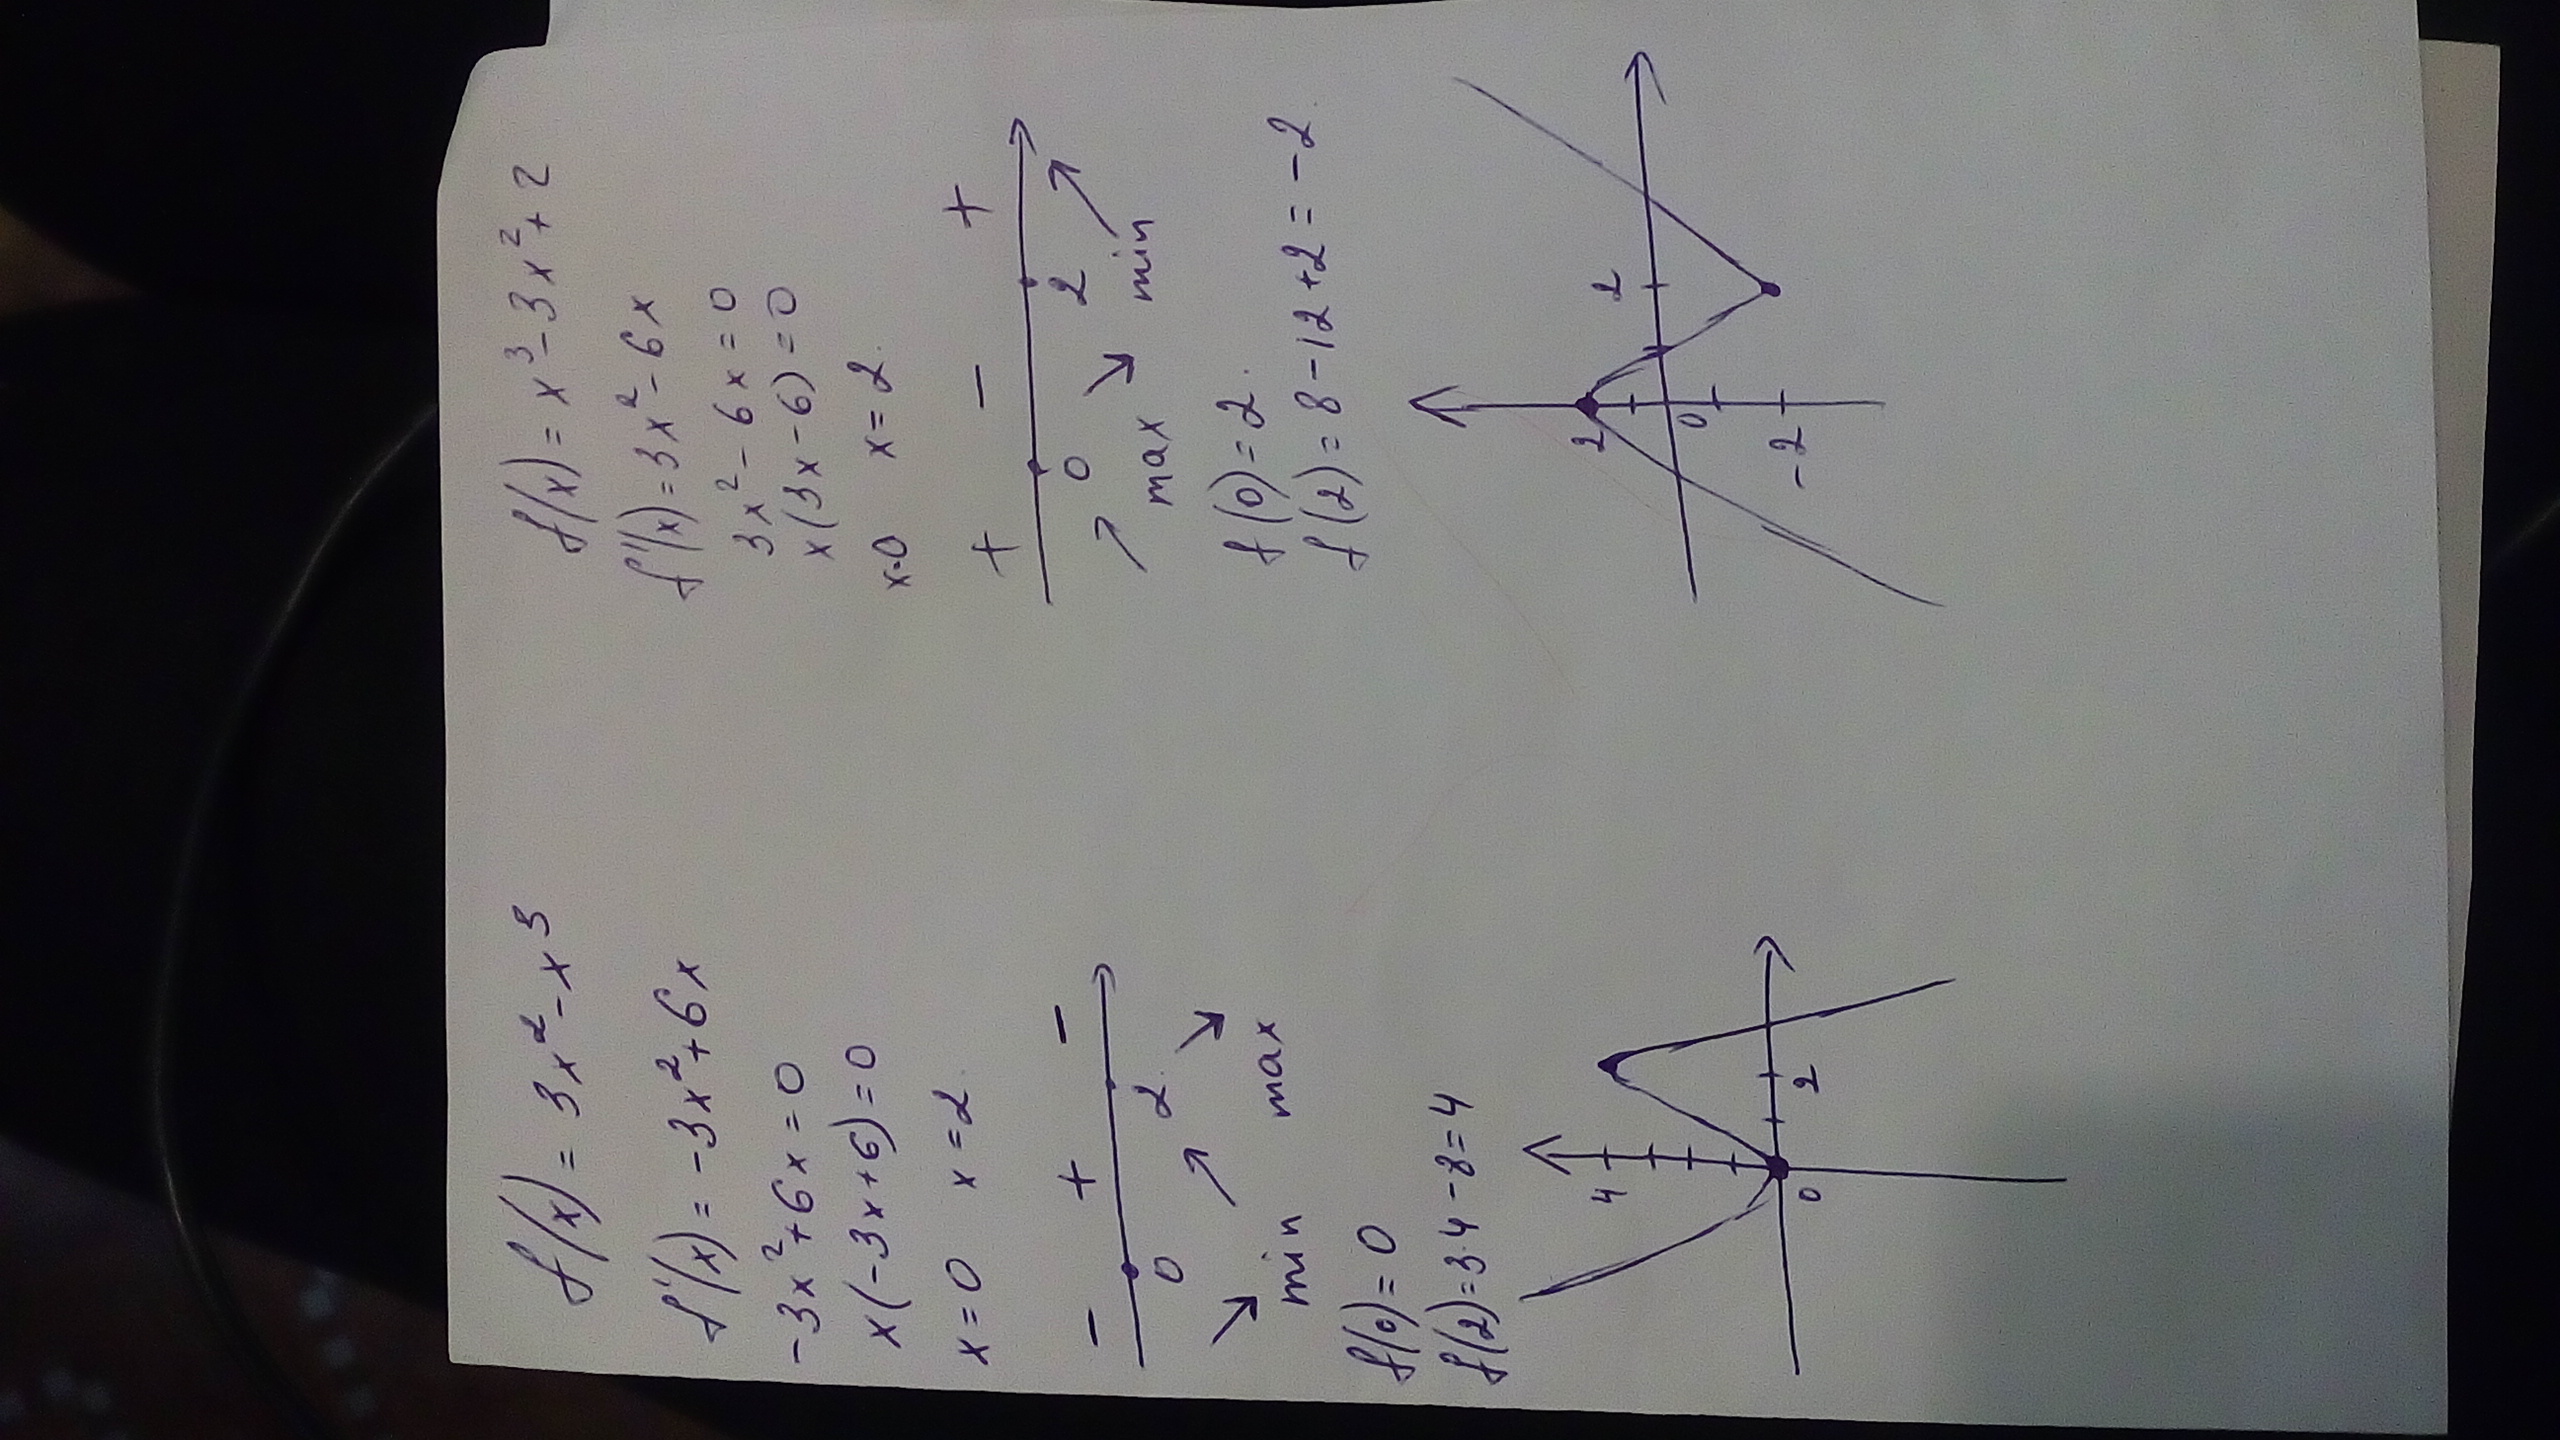 f(x) = 3x² - x³
f'(x) = -3x² + 6x
-3x² + 6x = 0
x(-3x+6) = 0
x = 0 x = 2
- + -
0 2
min max
f(0) = 0
f(2) = 3·4 - 8 = 4
4
0 2
f(x) = x³ - 3x² + 2
f'(x) = 3x² - 6x
3x² - 6x = 0
x(3x - 6) = 0
x=0 x = 2
+ - +
0 2
max min
f(0) = 2
f(2) = 8 - 12 + 2 = -2
2
2
0
-2